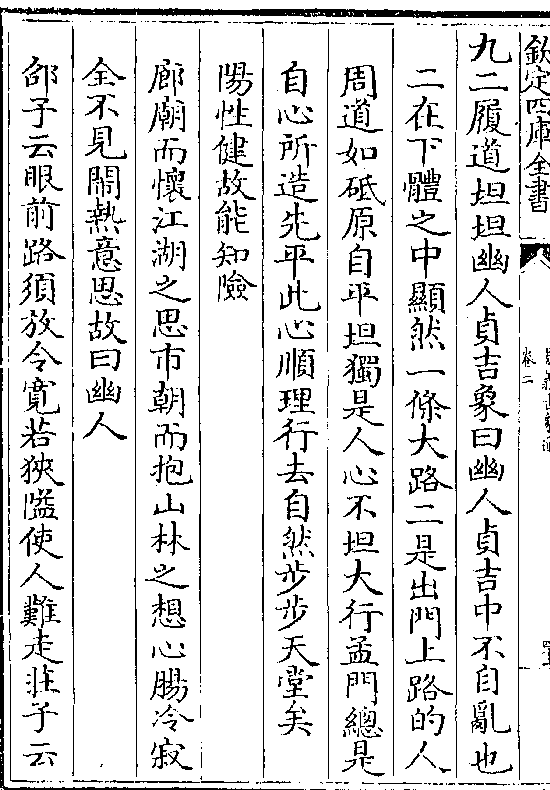 欽定四庫全書
卷二
九二履道坦坦幽人貞吉象曰幽人貞吉中不自亂也
二在下體之中顯然一條大路二是出門上路的人
周道如砥原自平坦獨是人心不坦大行孟門總是
自心所造先平此心順理行去自然步步天堂矣
陽性健故能知險
廊廟而懷江湖之思市朝而抱山林之想心腸冷寂
全不見鬧熱意思故曰幽人
邵子云眼前路須放令寬若狹隘使人難走莊子云